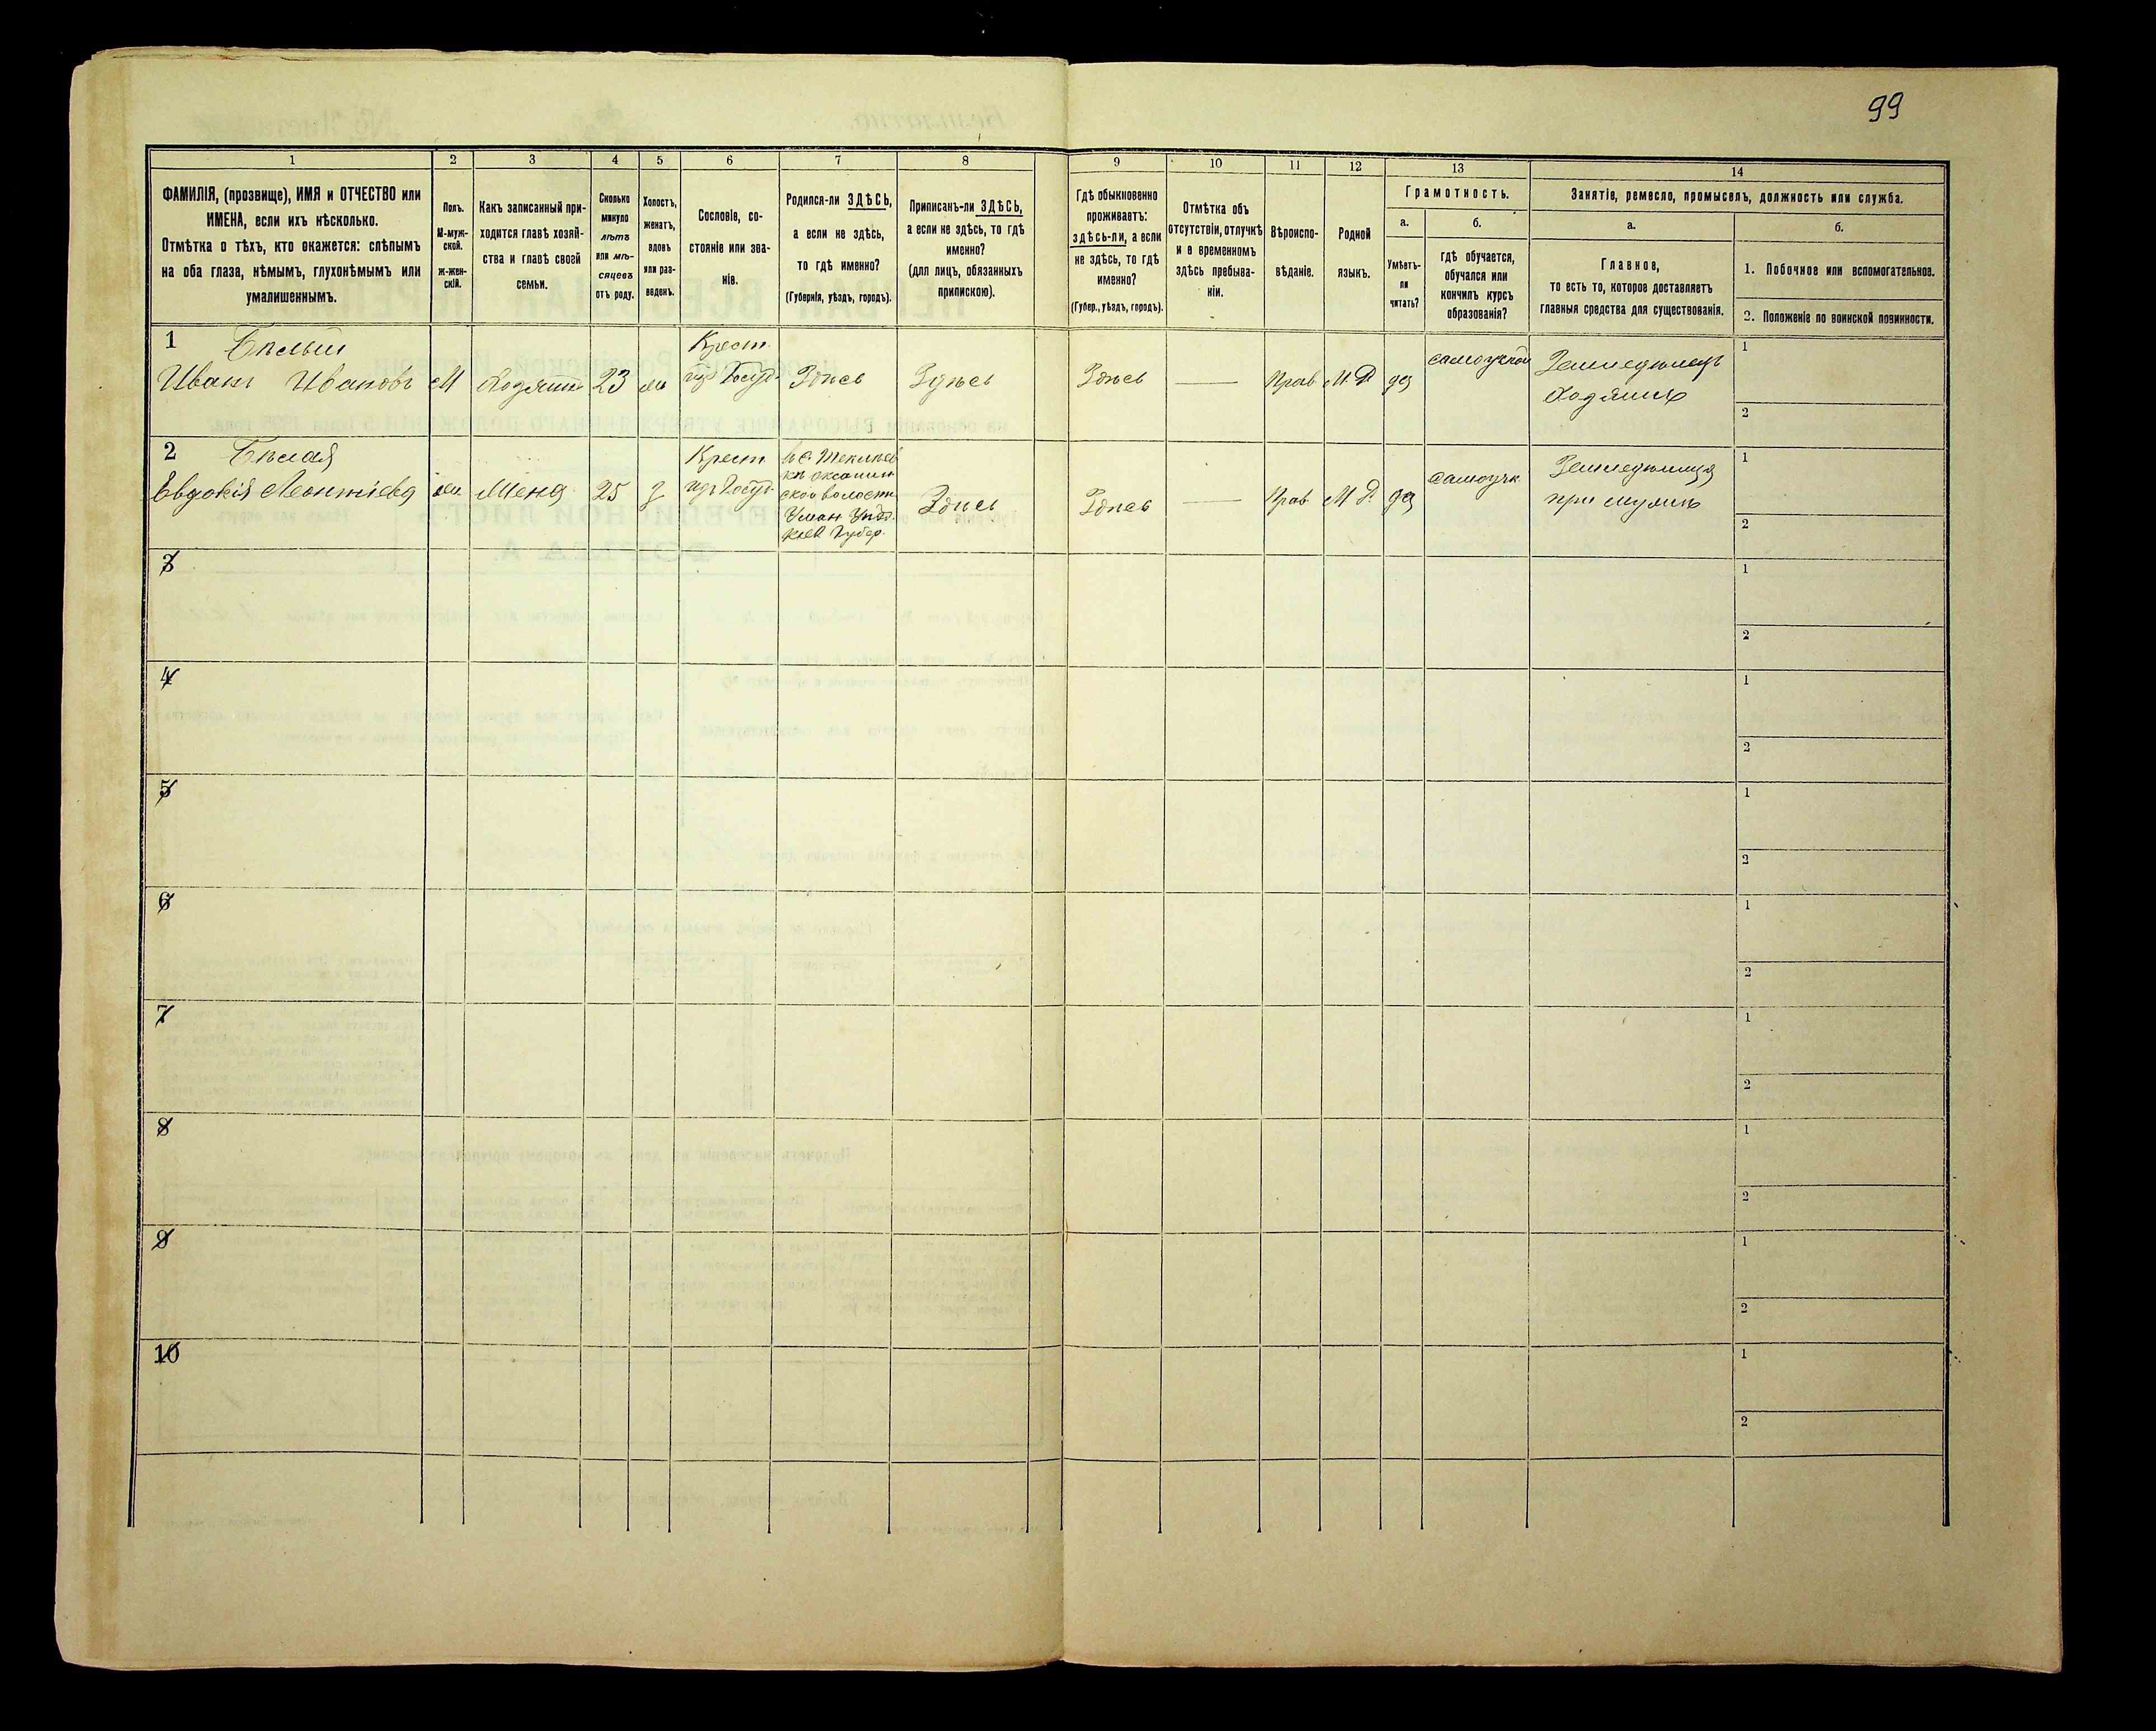 99
1 2 3 4 5 6 7 8 9 10 11 12 13 14
ФАМИЛІЯ, (прозвище), ИМЯ и ОТЧЕСТВО или
ИМЕНА, если ихъ нѣсколько.
Отмѣтка о тѣхъ, кто окажется: слѣпымъ
на оба глаза, нѣмымъ, глухонѣмымъ или
умалишеннымъ.
Полъ.
М-муж-
ской.
Ж-жен-
скій.
Какъ записанный при-
ходится главѣ хозяй-
ства и главѣ своей
семьи.
Сколько
минуло
лѣтъ
или мѣ-
сяцевъ
отъ роду.
Холостъ,
женатъ,
вдовъ
или раз-
веденъ.
Сословіе, со-
стояніе или зва-
ніе.
Родился-ли ЗДѢСЬ,
а если не здѣсь,
то гдѣ именно?
(Губернія, уѣздъ, городъ).
Приписанъ-ли ЗДѢСЬ,
а если не здѣсь, то гдѣ
именно?
(для лицъ, обязанныхъ
припискою).
Гдѣ обыкновенно
проживаетъ:
здѣсь-ли, а если
не здѣсь, то гдѣ
именно?
(Губер., уѣздъ, городъ).
Отмѣтка объ
отсутствіи, отлучкѣ
и о временномъ
здѣсь пребыва-
ніи.
Вѣроиспо-
вѣданіе.
Родной
языкъ.
Грамотность.
а.
Умѣетъ-
ли
читать?
б.
гдѣ обучается,
обучался или
кончилъ курсъ
образованія?
Занятіе, ремесло, промыселъ, должность или служба.
а.
Главное,
то есть то, которое доставляетъ
главныя средства для существованія.
б.
1. Побочное или вспомогательное.
2. Положеніе по воинской повинности.
1 Бѣлый
Иванъ Ивановъ М Хозяинъ 23 Крест
изъ Госуд. Здѣсь Здѣсь Здѣсь — Прав М.Р. да
самоучкой
Земледѣлецъ
Хозяинъ
1
2
2 Бѣлая
Евдокія Леонтіева Жена 25 Крест
изъ Госуд.
ской волости
Уман Уѣзд.
Кіев Губер.
Здѣсь Здѣсь — Прав М.Р. да
самоучк
Земледѣлица
при мужѣ
1
2
3
1
2
4
1
2
5
1
2
6
1
2
7
1
2
8
1
2
9
1
2
10
1
2